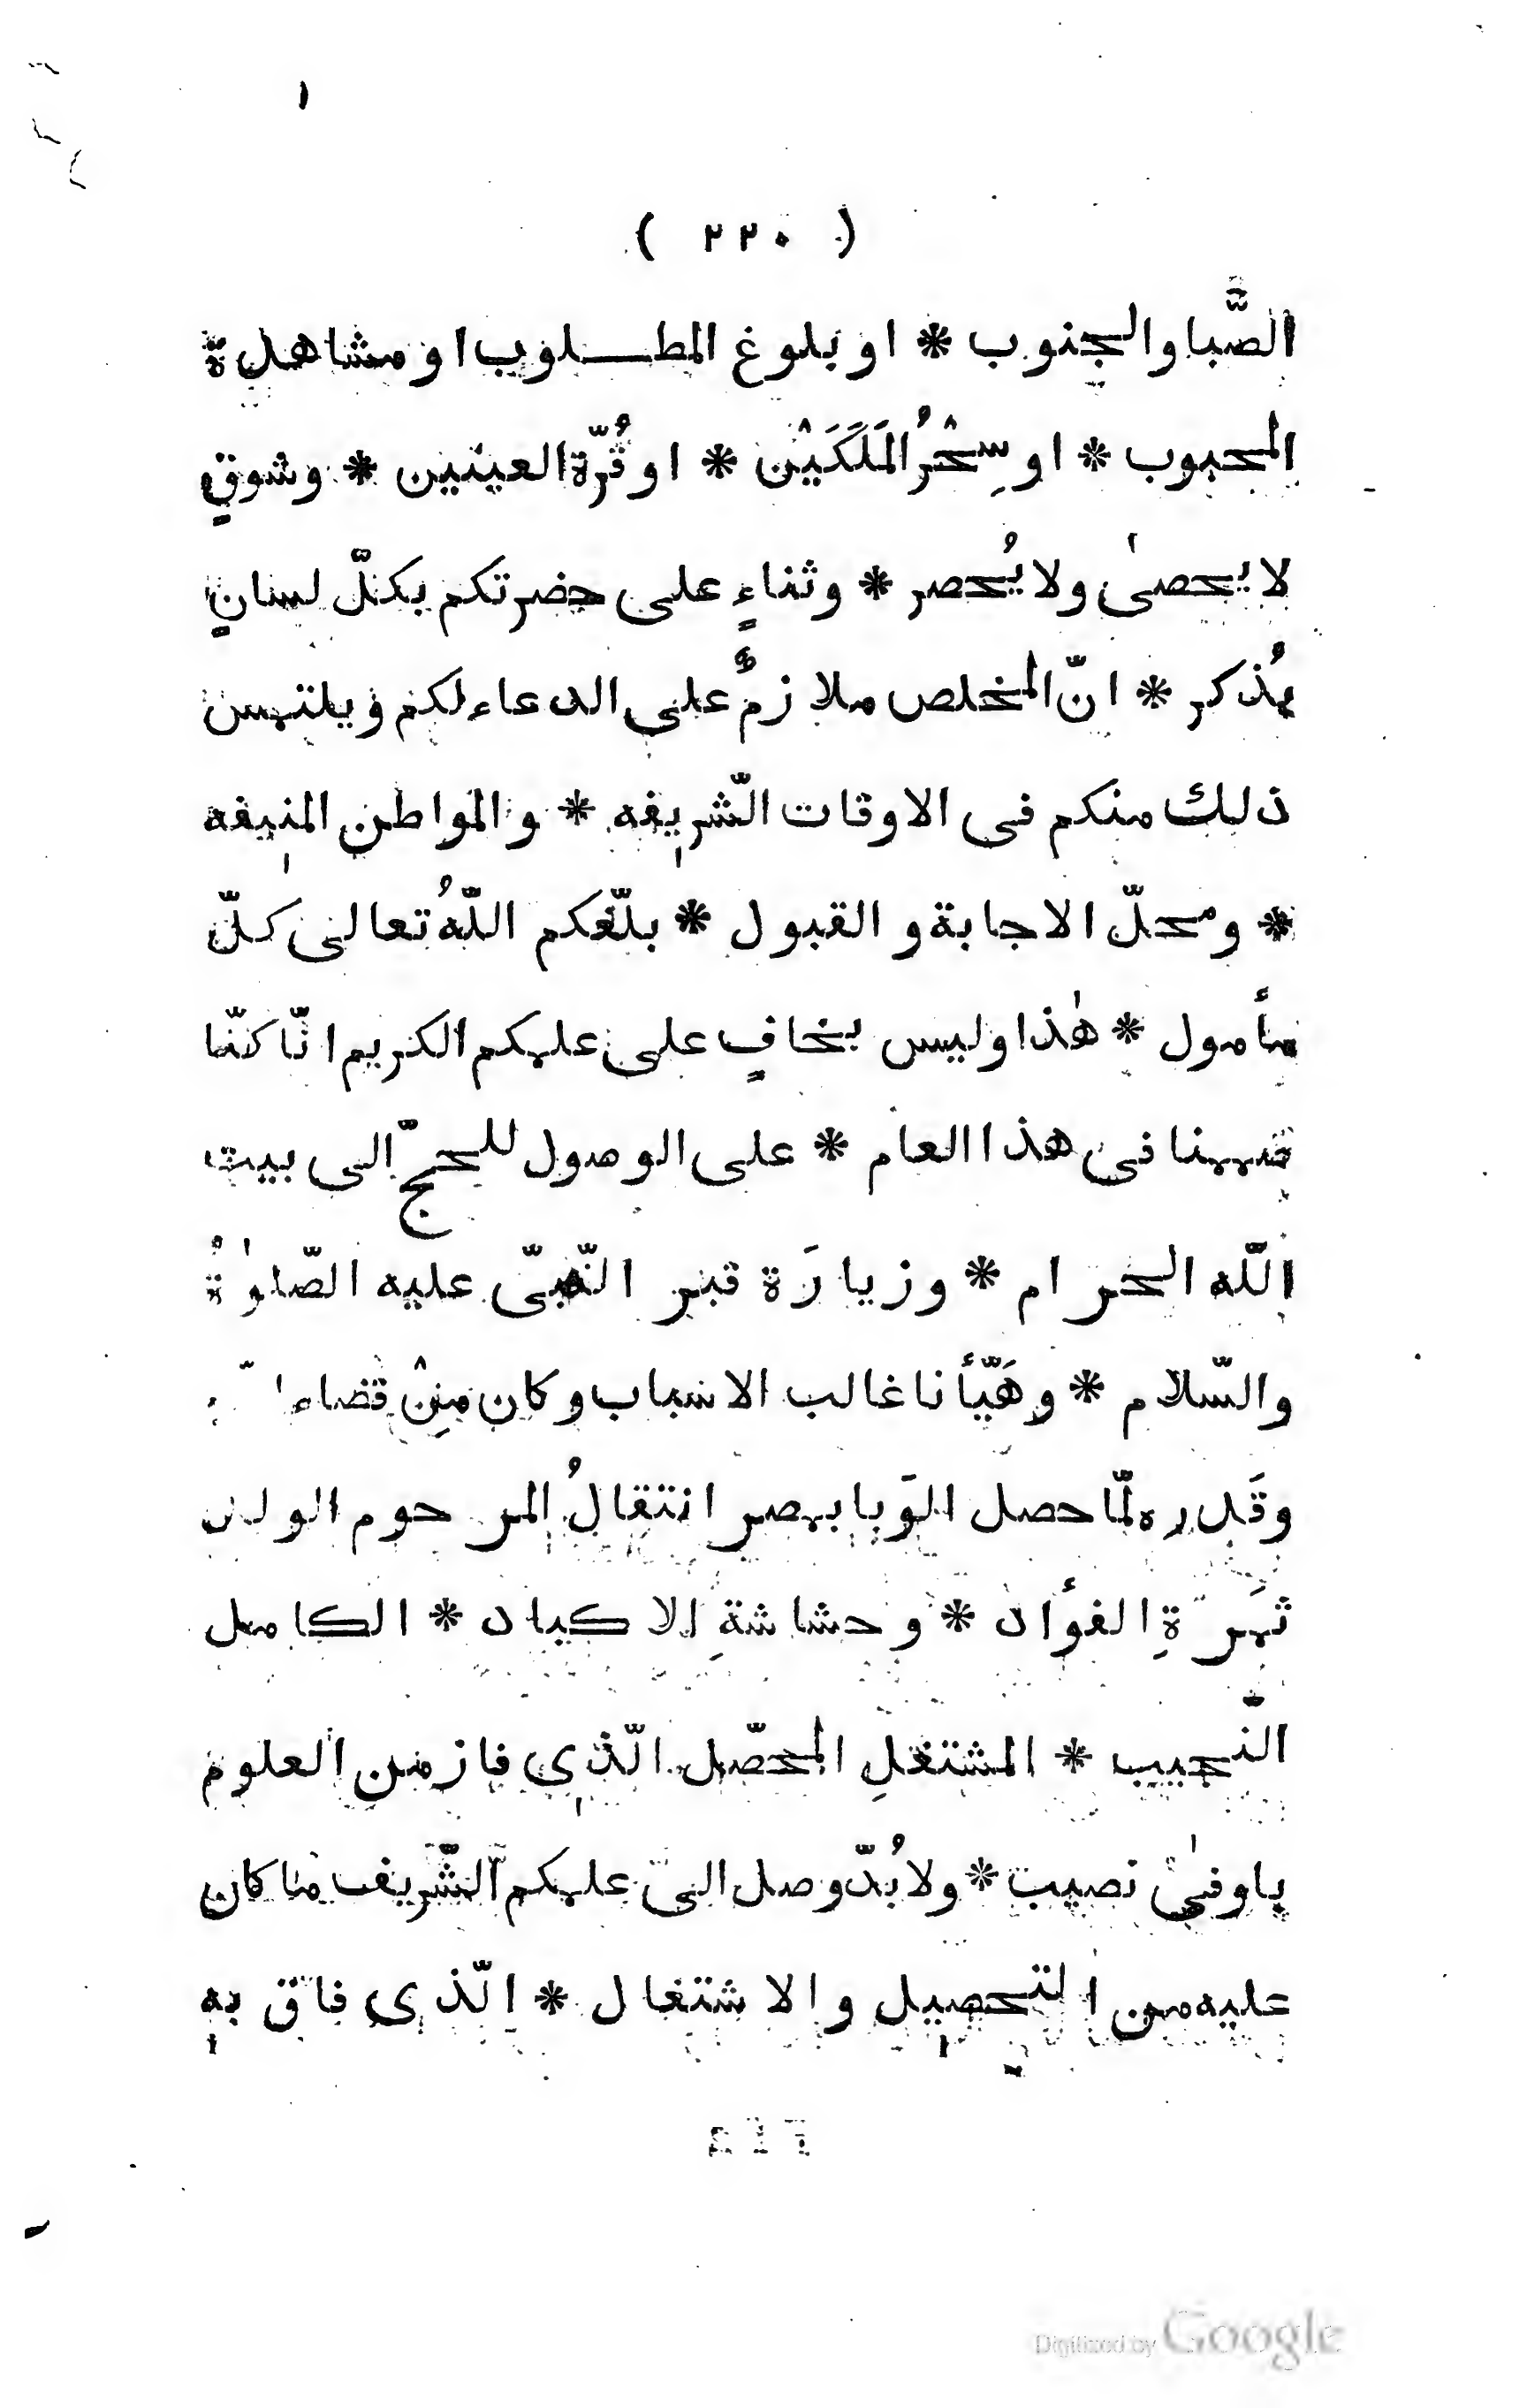 ( ٢٢٠ )
الصَّبا والجنوب * او بلوغ المطلوب او مشاهدة
المحبوب * او سِحْرُ المَلَكَيْن * او قُرّة العينين * وشوقٍ
لا يحصىٰ ولا يُحصر * وثناءٍ على حضرتكم بكلّ لسانٍ
يُذكر * انّ المخلص ملازمٌ على الدعاء لكم ويلتمس
ذلك منكم فى الاوقات الشّريفه * والمواطن المنيفه
* ومحلّ الاجابة و القبول * بلّغكم اللّهُ تعالى كلّ
مأمول * هٰذا وليس بخافٍ على علمكم الكريم انّا كنّا
صممنا فى هذا العام * على الوصول للحجّ الى بيت
اللّه الحرام * وزيارَة قبر النّبىّ عليه الصّلوٰةُ
والسّلام * وهَيّأنا غالب الاسباب و كان مِنْ قضاء
وقَدره لمّا حصل الوَبا بمصر انتقالُ المرحوم الولد
ثمرَةِ الفؤاد * وحشاشةِ الاكباد * الكامل
النّجيب * المشتغلِ المحصّل الّذى فاز من العلوم
باوفىٰ نصيب * ولابُدّ وصل الى علمكم الشّريف ما كان
عليه من التحصيل والاشتغال * الّذى فاق به
Digitized by Google